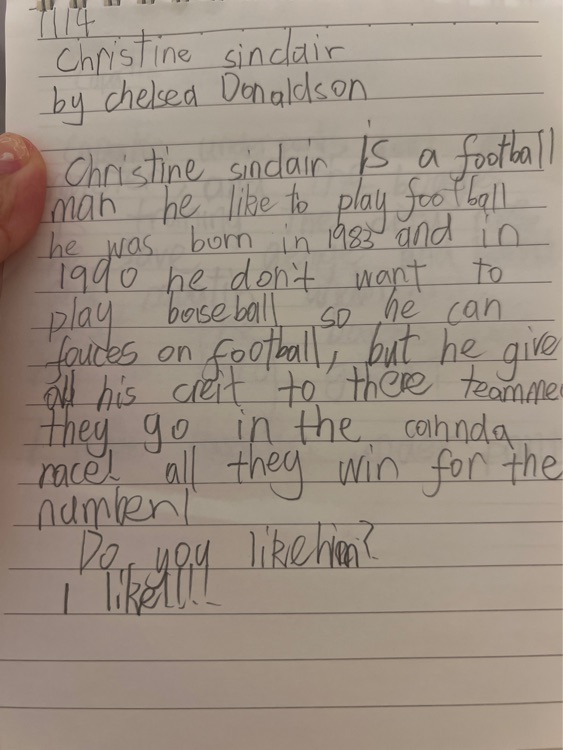 11/4
Christine sinclair
by chelsea Donaldson
Christine sinclair is a football
man he like to play football
he was born in 1983 and in
1990 he don't want to
play baseball so he can
fouces on football, but he give
all his creit to there teamme
they go in the cahnda
race! all they win for the
number1
Do you like him?
I like!!!!